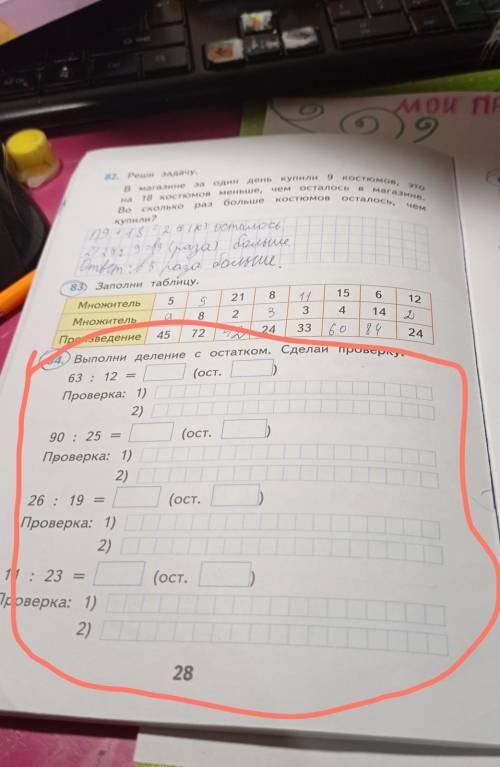 МОИ ПР
82. Реши задачу.
В магазине за один день купили 9 костюмов, это
на 18 костюмов меньше, чем осталось в магазине.
Во сколько раз больше костюмов осталось, чем
купили?
1) 9 + 18 = 27 (к) осталось
(раза) больше
Ответ: в 3 раза больше.
83. Заполни таблицу.
Множитель 5 9 21 8 11 15 6 12
Множитель 9 8 2 3 3 4 14 2
Произведение 45 72 42 24 33 60 84 24
84. Выполни деление с остатком. Сделай проверку.
63 : 12 = (ост. )
Проверка: 1)
2)
90 : 25 = (ост. )
Проверка: 1)
2)
26 : 19 = (ост. )
Проверка: 1)
2)
: 23 = (ост. )
Проверка: 1)
2)
28